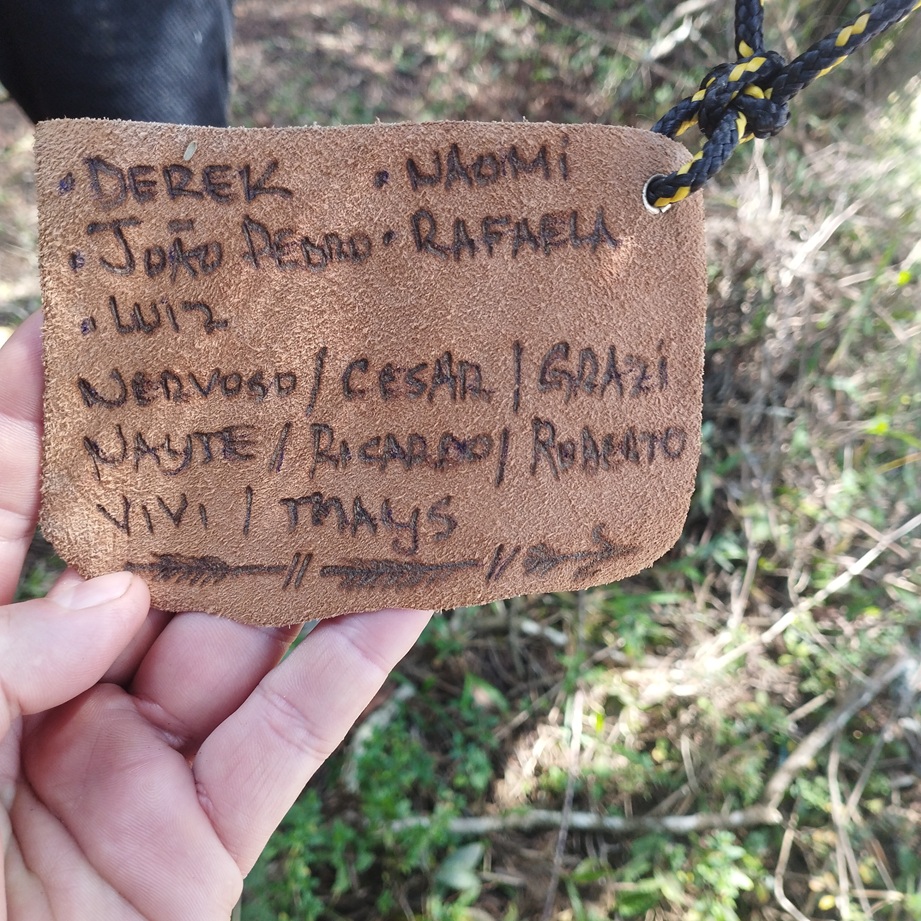 • DEREK • NAOMI
• JOÃO PEDRO • RAFAELA
• LUIZ
NERVOSO / CESAR / GRAZI
NAYTE / RICARDO / ROBERTO
VIVI / THAYS